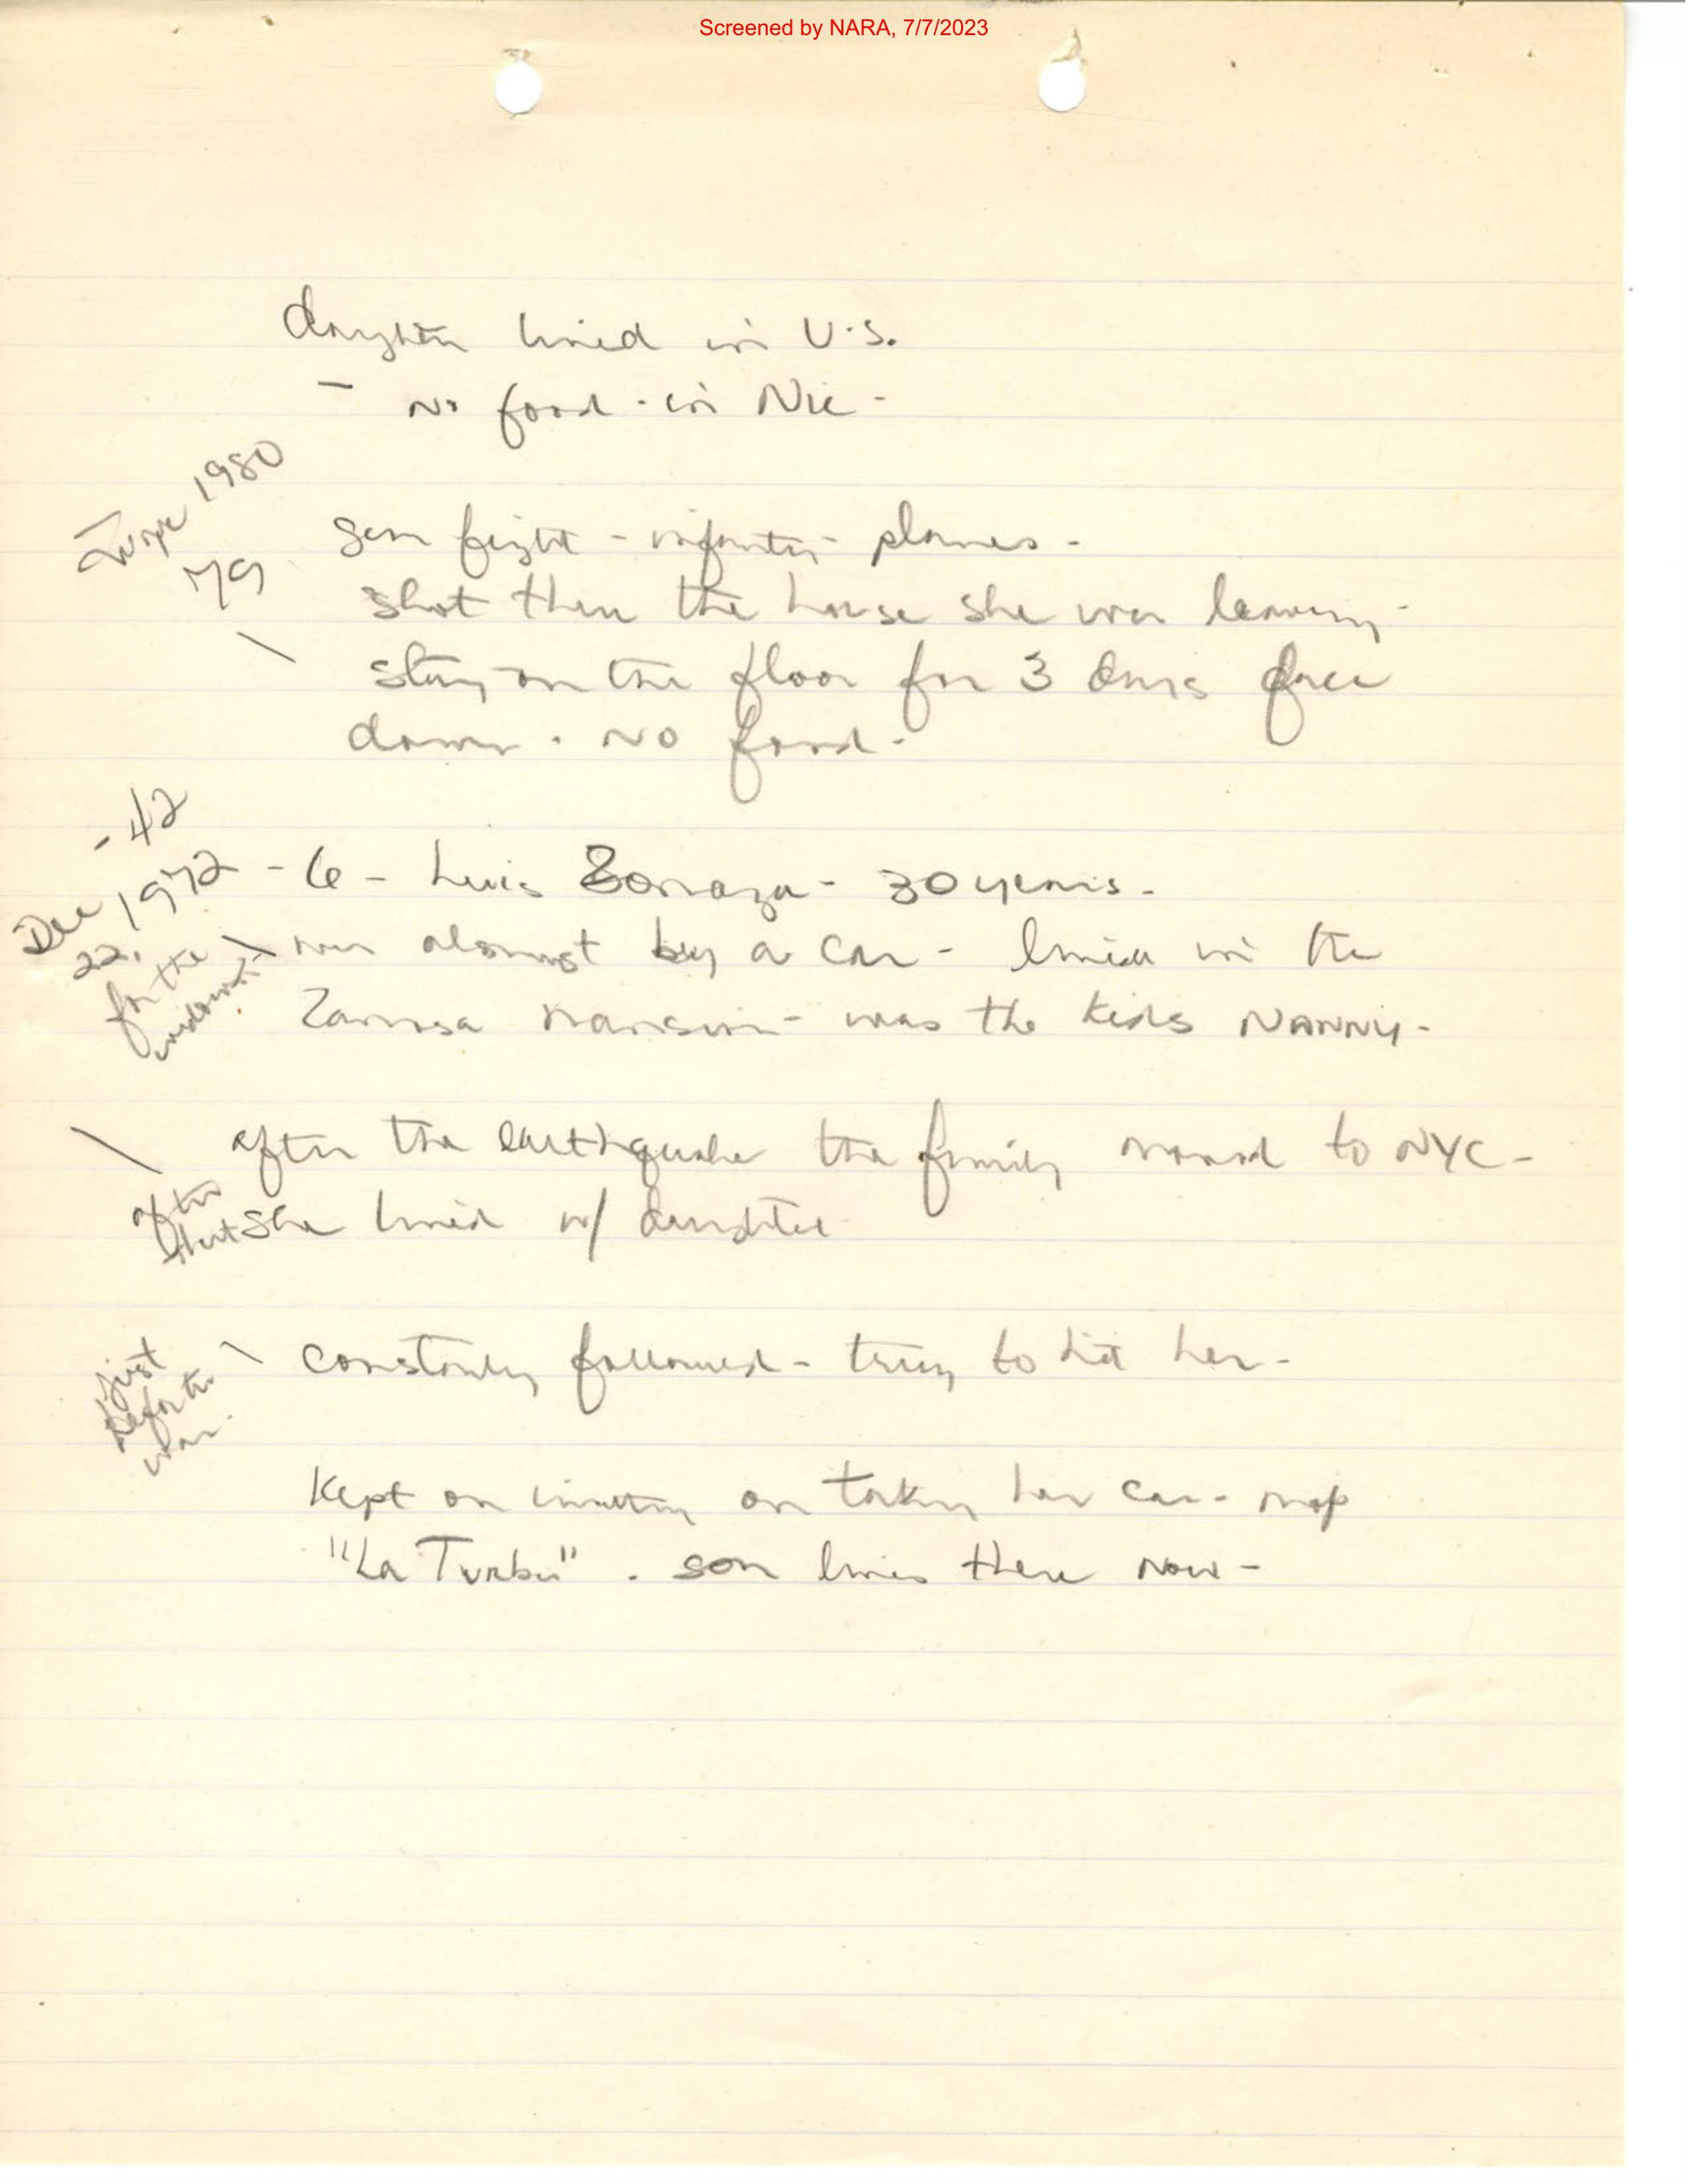 Screened by NARA, 7/7/2023
daughter lived in U.S.
- No food - in Nic -
1980
79
gun fight - infantry - planes -
shot thru the house she was leaving -
stay on the floor for 3 days face
down. NO food -
- 42
Dec 1972 - 6 - Luis - 30 years -
22.
for the
run almost by a car - lived in the
mansion - was the kids NANNY -
after the earthquake the family moved to NYC -
after
that she lived w/ daughter
just
before the
war.
constantly followed - trying to hit her -
Kept on on taking her car - map
"La " . son lives there now -